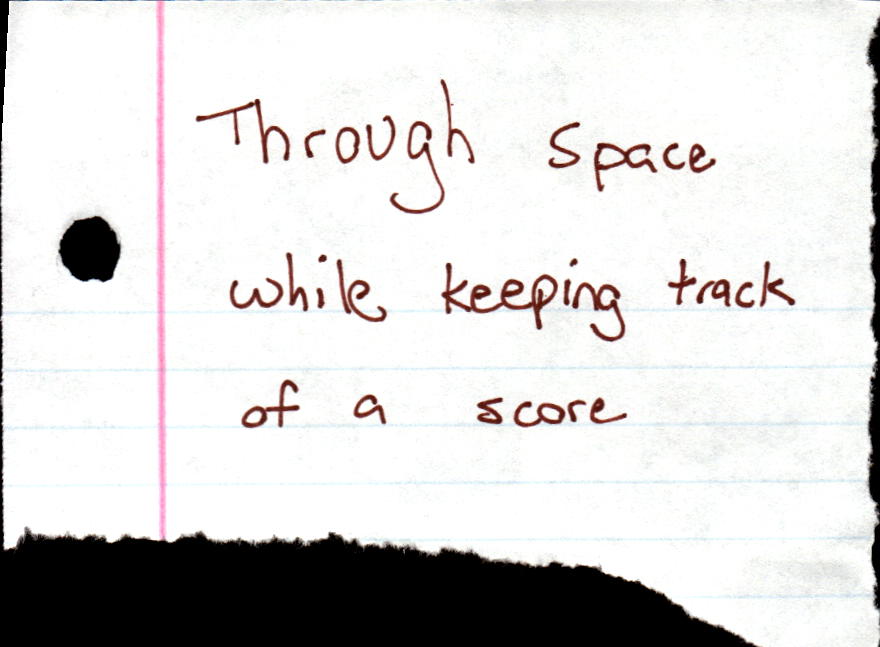 Through space
while keeping track
of a score